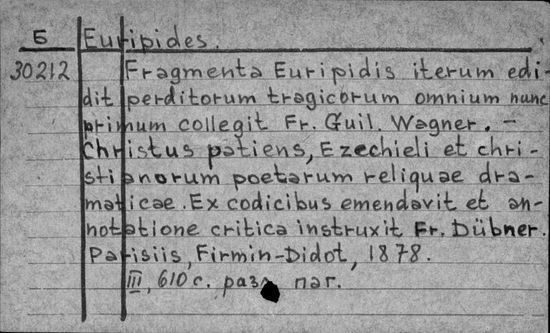 Б Euripides.
30212 Fragmenta Euripidis iterum edi-
dit perditorum tragicorum omnium nunc
primum collegit Fr. Guil. Wagner. –
Christus patiens, Ezechieli et chri-
stianorum poetarum reliquae dra-
maticae. Ex codicibus emendavit et an-
notatione critica instruxit Fr. Dübner.
Parisiis, Firmin-Didot, 1878.
III, 610 с. разн. паг.